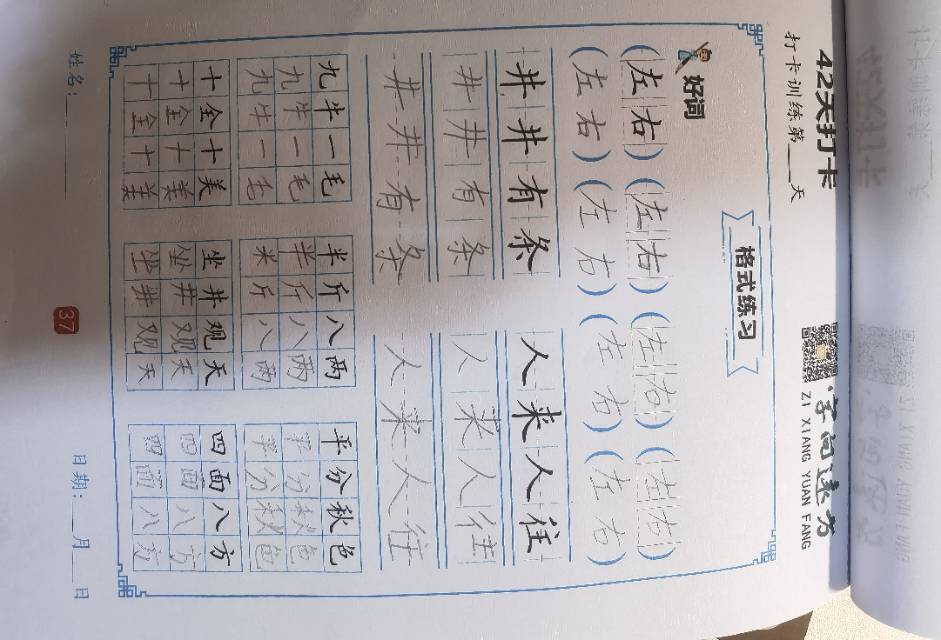 42天打卡
字向远方
打卡训练第___天
ZI XIANG YUAN FANG
格式练习
好词
(左右)(左右)(左右)(左右)
(左右)(左右)(左右)(左右)
井井有条 人来人往
井井有条 人来人往
井井有条 人来人往
九牛一毛 半斤八两 平分秋色
九牛一毛 半斤八两 平分秋色
九牛一毛 米斤八两 平分秋色
十全十美 坐井观天 四面八方
十全十美 坐井观天 四面八方
十全十美 坐井观天 四面八方
姓名:______ 日期:___月___日
37